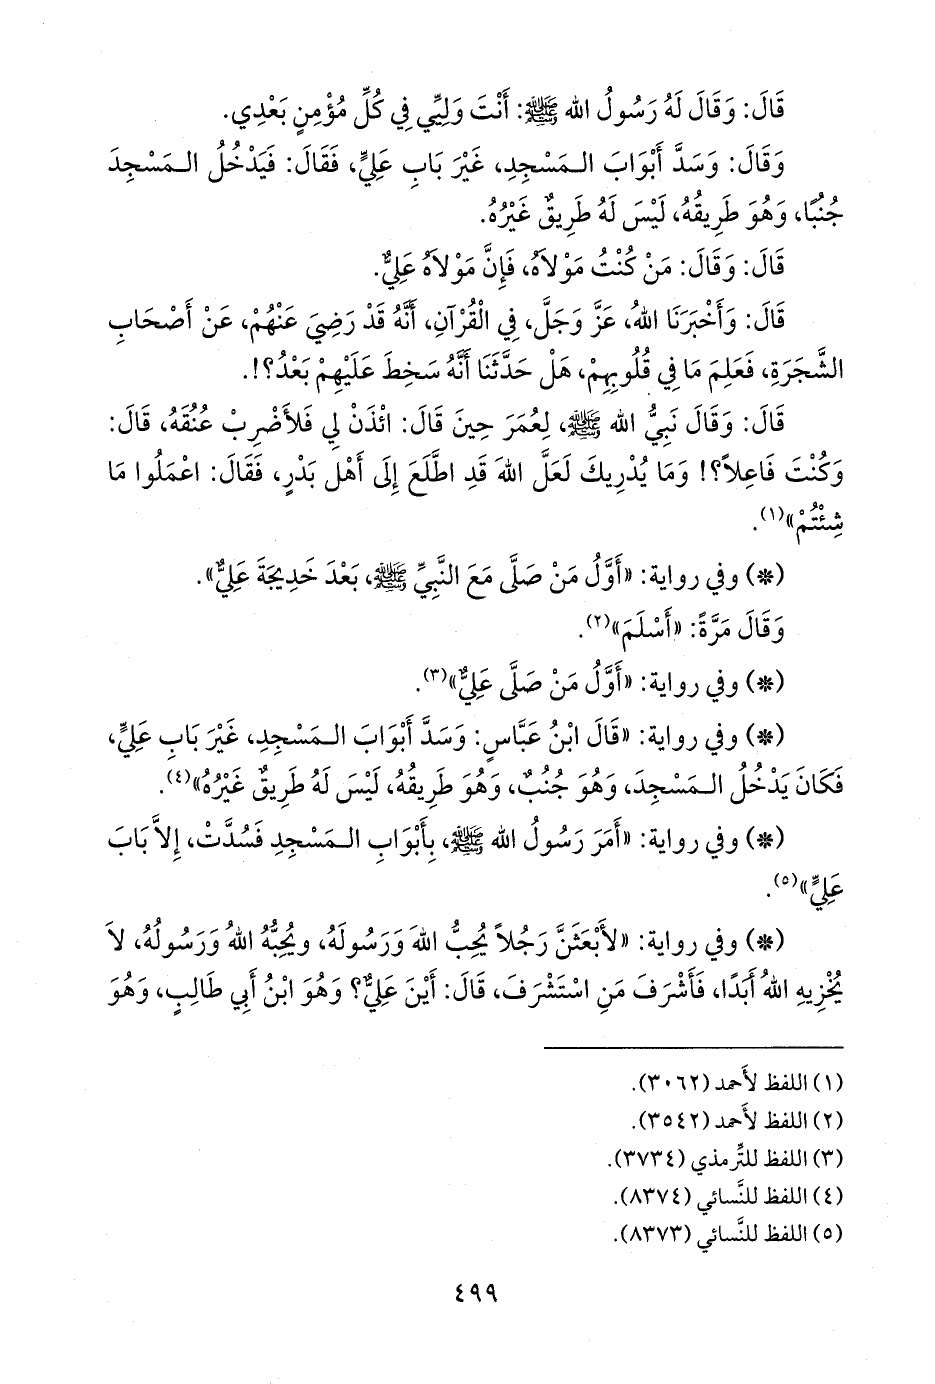 قَالَ: وَقَالَ لَهُ رَسُولُ الله ﷺ: أَنْتَ وَلِيِّي فِي كُلِّ مُؤْمِنٍ بَعْدِي.
وَقَالَ: وَسَدَّ أَبْوَابَ الـمَسْجِدِ، غَيْرَ بَابِ عَلِيٍّ، فَقَالَ: فَيَدْخُلُ الـمَسْجِدَ
جُنُبًا، وَهُوَ طَرِيقُهُ، لَيْسَ لَهُ طَرِيقٌ غَيْرُهُ.
قَالَ: وَقَالَ: مَنْ كُنْتُ مَوْلاَهُ، فَإِنَّ مَوْلاَهُ عَلِيٌّ.
قَالَ: وَأَخْبَرَنَا اللهُ، عَزَّ وَجَلَّ، فِي الْقُرْآنِ، أَنَّهُ قَدْ رَضِيَ عَنْهُمْ، عَنْ أَصْحَابِ
الشَّجَرَةِ، فَعَلِمَ مَا فِي قُلُوبِهِمْ، هَلْ حَدَّثَنَا أَنَّهُ سَخِطَ عَلَيْهِمْ بَعْدُ؟!.
قَالَ: وَقَالَ نَبِيُّ الله ﷺ، لِعُمَرَ حِينَ قَالَ: ائْذَنْ لِي فَلأَضْرِبْ عُنُقَهُ، قَالَ:
وَكُنْتَ فَاعِلاً؟! وَمَا يُدْرِيكَ لَعَلَّ اللهَ قَدِ اطَّلَعَ إِلَى أَهْلِ بَدْرٍ، فَقَالَ: اعْمَلُوا مَا
شِئْتُمْ»(١).
(*) وفي رواية: «أَوَّلُ مَنْ صَلَّى مَعَ النَّبِيِّ ﷺ، بَعْدَ خَدِيجَةَ عَلِيٌّ».
وَقَالَ مَرَّةً: «أَسْلَمَ»(٢).
(*) وفي رواية: «أَوَّلُ مَنْ صَلَّى عَلِيٌّ»(٣).
(*) وفي رواية: «قَالَ ابْنُ عَبَّاسٍ: وَسَدَّ أَبْوَابَ الـمَسْجِدِ، غَيْرَ بَابِ عَلِيٍّ،
فَكَانَ يَدْخُلُ الـمَسْجِدَ، وَهُوَ جُنُبٌ، وَهُوَ طَرِيقُهُ، لَيْسَ لَهُ طَرِيقٌ غَيْرُهُ»(٤).
(*) وفي رواية: «أَمَرَ رَسُولُ الله ﷺ، بِأَبْوَابِ الـمَسْجِدِ فَسُدَّتْ، إِلاَّ بَابَ
عَلِيٍّ»(٥).
(*) وفي رواية: «لأَبْعَثَنَّ رَجُلاً يُحِبُّ اللهَ وَرَسُولَهُ، ويُحِبُّهُ اللهُ وَرَسُولُهُ، لاَ
يُخْزِيهِ اللهُ أَبَدًا، فَأَشْرَفَ مَنِ اسْتَشْرَفَ، قَالَ: أَيْنَ عَلِيٌّ؟ وَهُوَ ابْنُ أَبِي طَالِبٍ، وَهُوَ
(١) اللفظ لأَحمد (٣٠٦٢).
(٢) اللفظ لأَحمد (٣٥٤٢).
(٣) اللفظ للتِّرمذي (٣٧٣٤).
(٤) اللفظ للنَّسائي (٨٣٧٤).
(٥) اللفظ للنَّسائي (٨٣٧٣).
٤٩٩